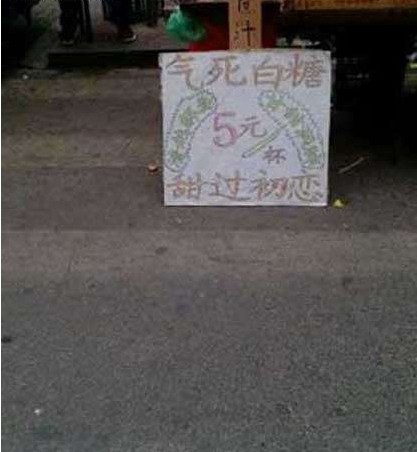 汁
气死白糖
5元/杯
甜过初恋